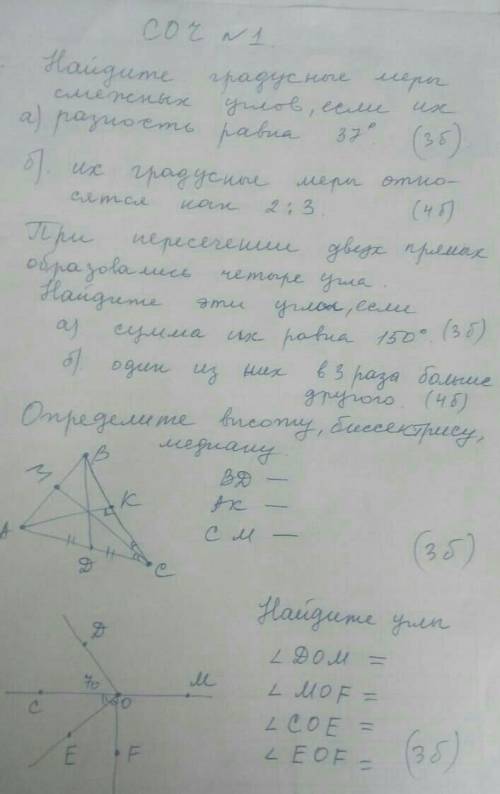 СОЧ №1.
Найдите градусные меры
смежных углов, если их
а) разность равна 37° (3б)
б). их градусные меры отно-
сятся как 2:3. (4б)
При пересечении двух прямых
образовались четыре угла.
Найдите эти углы, если
а) сумма их равна 150°. (3б)
б). один из них в 3 раза больше
другого. (4б)
Определите высоту, биссектрису,
медиану.
B
BD —
K
AK —
A
CM —
D
C
(3б)
Найдите углы
D
∠DOM =
70
M
∠MOF =
C
O
∠COE =
E
F
∠EOF = (3б)